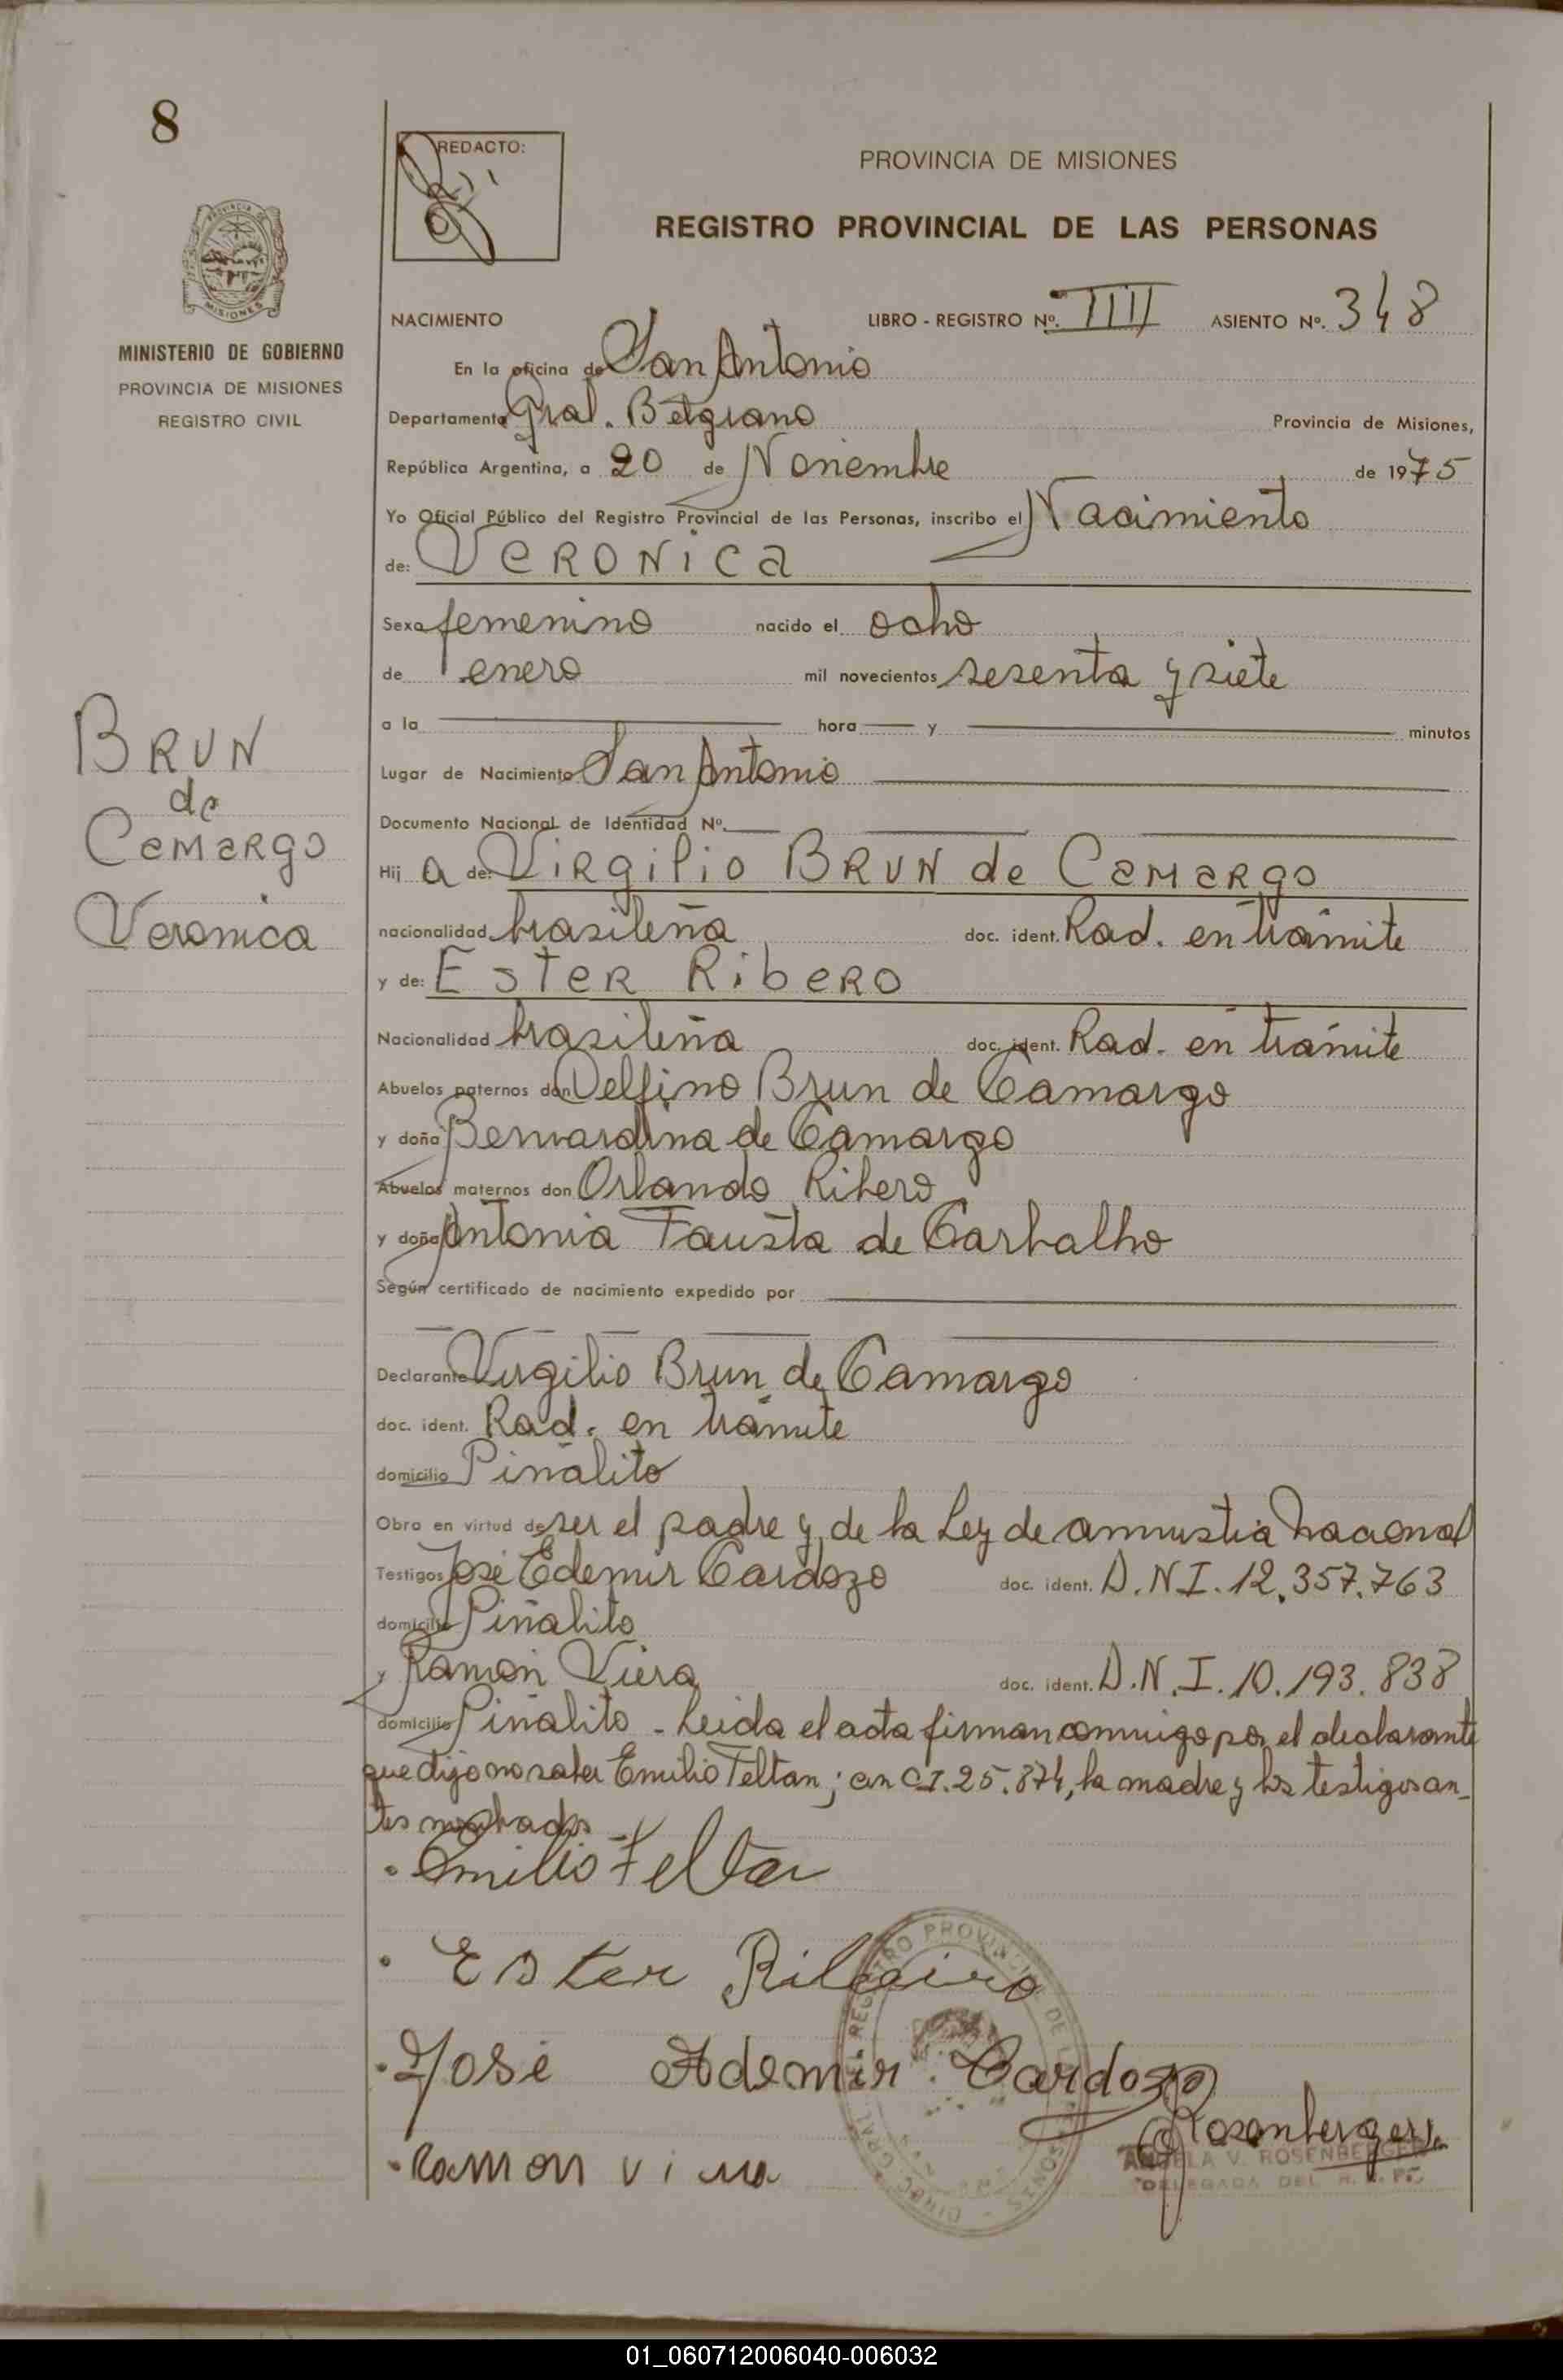 8
REDACTO:
PROVINCIA DE MISIONES
REGISTRO PROVINCIAL DE LAS PERSONAS
PROVINCIA DE
MISIONES
MINISTERIO DE GOBIERNO
PROVINCIA DE MISIONES
REGISTRO CIVIL
NACIMIENTO LIBRO - REGISTRO Nº. IIII ASIENTO Nº. 348
En la oficina de San Antonio
Departamento Gral. Belgrano Provincia de Misiones,
República Argentina, a 20 de Noviembre de 1975
Yo Oficial Público del Registro Provincial de las Personas, inscribo el Nacimiento
de: VERONICA
Sexo femenino nacido el ocho
de enero mil novecientos sesenta y siete
a la hora y minutos
Lugar de Nacimiento San Antonio
Documento Nacional de Identidad Nº.
BRUN
de
Camargo
Veronica
Hij a de: Virgilio BRUN de Camargo
nacionalidad brasileña doc. ident. Rad. en trámite
y de: Ester Ribero
Nacionalidad brasileña doc. ident. Rad. en trámite
Abuelos paternos don Delfino Brun de Camargo
y doña Bernardina de Camargo
Abuelos maternos don Orlando Ribero
y doña Antonia Fausta de Carbalho
Según certificado de nacimiento expedido por
Declarante Virgilio Brun de Camargo
doc. ident. Rad. en trámite
domicilio Piñalito
Obra en virtud de ser el padre y de la Ley de amnistia nacional
Testigos José Edemir Cardozo doc. ident. D.N.I. 12.357.763
domicilio Piñalito
y Ramón Viera doc. ident. D.N.I. 10.193.838
domicilio Piñalito - Leida el acta firman conmigo por el declarante
que dijo no saber Emilio Feltan; con C.I. 25.874, la madre y los testigos an-
tes nombrados
Emilio Feltan
Ester Ribeiro
José Ademir Cardozo
Ramon viera
Rosenberger
ANGELA V. ROSENBERGER
DELEGADA DEL R. P. P.
01_060712006040-006032